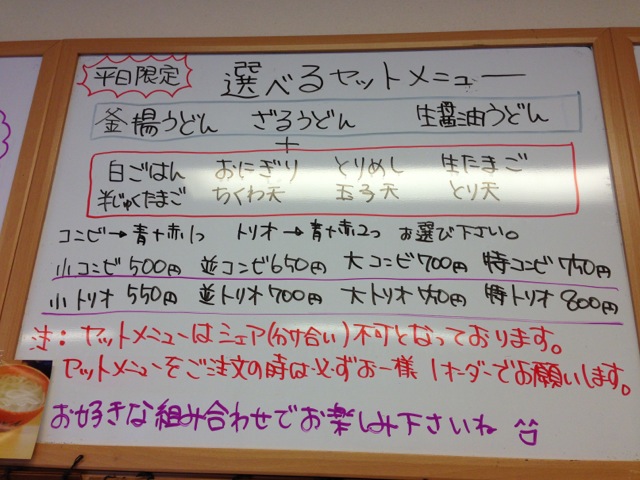 平日限定 選べるセットメニュー
釜揚うどん ざるうどん 生醤油うどん
+
白ごはん おにぎり とりめし 生たまご
半じゅくたまご ちくわ天 玉子天 とり天
コンビ→青+赤1つ トリオ→青+赤2つ お選び下さい。
小コンビ500円 並コンビ650円 大コンビ700円 特コンビ750円
小トリオ550円 並トリオ700円 大トリオ750円 特トリオ800円
注:セットメニューはシェア(分け合い)不可となっております。
セットメニューをご注文の時は必ずお一様1オーダーでお願いします。
お好きな組み合わせでお楽しみ下さいね